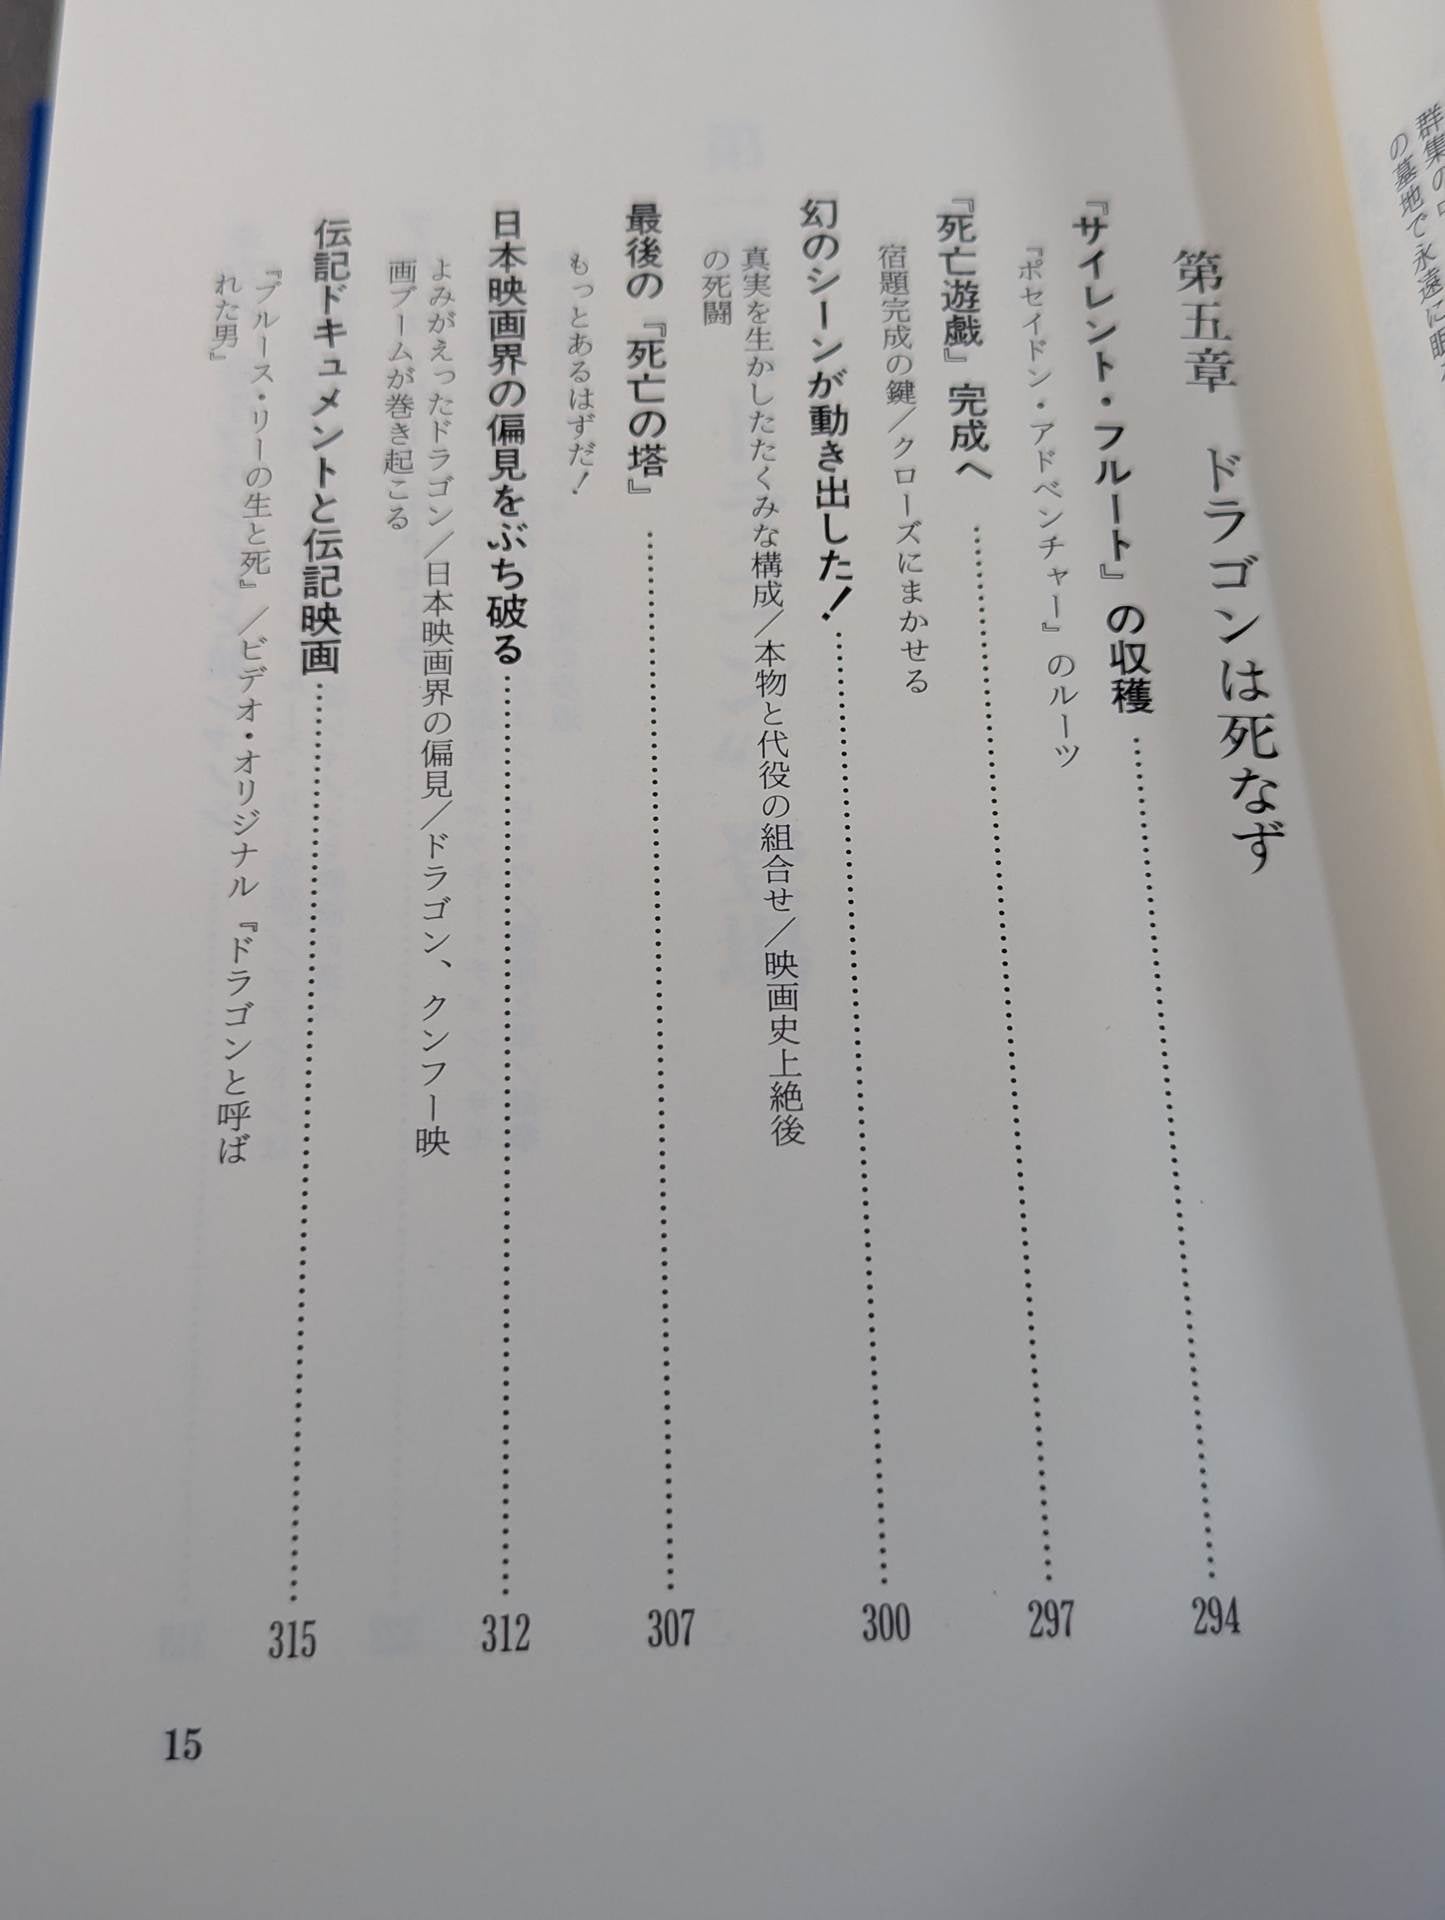 群集の
の墓地で永遠に眠
第五章　ドラゴンは死なず
『サイレント・フルート』の収穫……294
『ポセイドン・アドベンチャー』のルーツ
『死亡遊戯』完成へ……297
宿題完成の鍵／クローズにまかせる
幻のシーンが動き出した！……300
真実を生かしたたくみな構成／本物と代役の組合せ／映画史上絶後
の死闘
最後の『死亡の塔』……307
もっとあるはずだ！
日本映画界の偏見をぶち破る……312
よみがえったドラゴン／日本映画界の偏見／ドラゴン、クンフー映
画ブームが巻き起こる
伝記ドキュメントと伝記映画……315
『ブルース・リーの生と死』／ビデオ・オリジナル『ドラゴンと呼ば
れた男』
15